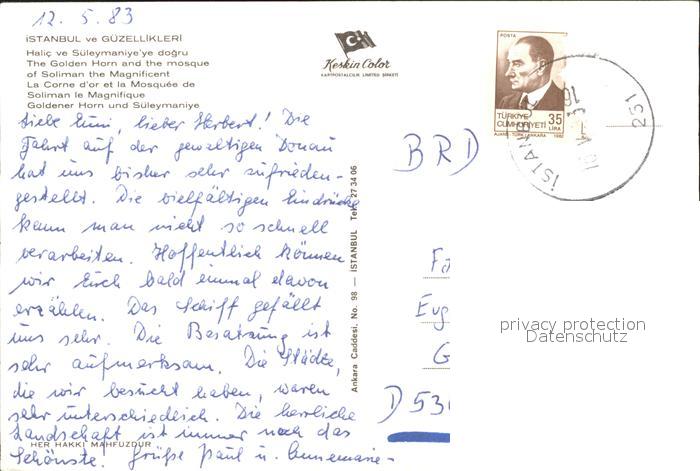 12.5.83
İSTANBUL ve GÜZELLİKLERİ
Haliç ve Süleymaniye'ye doğru
The Golden Horn and the mosque
of Soliman the Magnificent
La Corne d'or et la Mosquée de
Soliman le Magnifique
Goldener Horn und Süleymaniye
Keskin Color
KARTPOSTALCILIK LIMITED ŞİRKETİ
POSTA
TÜRKİYE
CUMHURİYETİ 35
LİRA
AJANS-TÜRK/ANKARA 1982
İSTANBUL
231
Liebe Emmi, lieber Herbert! Die
Fahrt auf der gewaltigen Donau
hat uns bisher sehr zufrieden-
gestellt. Die vielfältigen Eindrücke
kann man nicht so schnell
verarbeiten. Hoffentlich können
wir Euch bald einmal davon
erzählen. Das Schiff gefällt
uns sehr. Die Besatzung ist
sehr aufmerksam. Die Städte,
die wir besucht haben, waren
sehr unterschiedlich. Die herrliche
Landschaft ist immer noch das
Schönste. Grüße Paul u. Annemarie-
HER HAKKI MAHFUZDUR
Ankara Caddesi, No. 98 — İSTANBUL Tel: 27 34 06
BRD
Eug
G
D 53
privacy protection
Datenschutz